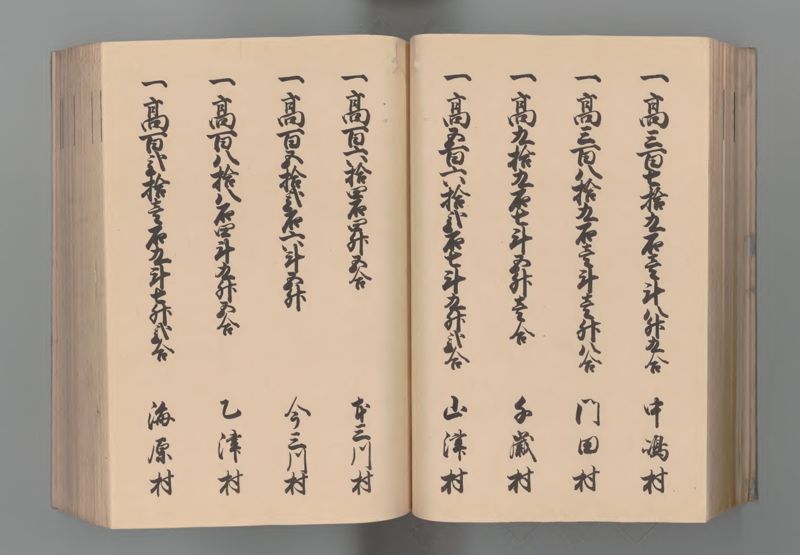 一高三百七拾九石壱斗八升九合 中嶋村
一高三百八拾九石壱斗壱升八合 門田村
一高九拾九石七斗五升壱合 千歳村
一高五百六拾弐石七斗九升弐合 山津村
一高百六拾四石四升五合 本三川村
一高百五拾弐石六斗五升 今三川村
一高百八拾八石四斗九升五合 乙津村
一高百弐拾壱石九斗七升弐合 海原村